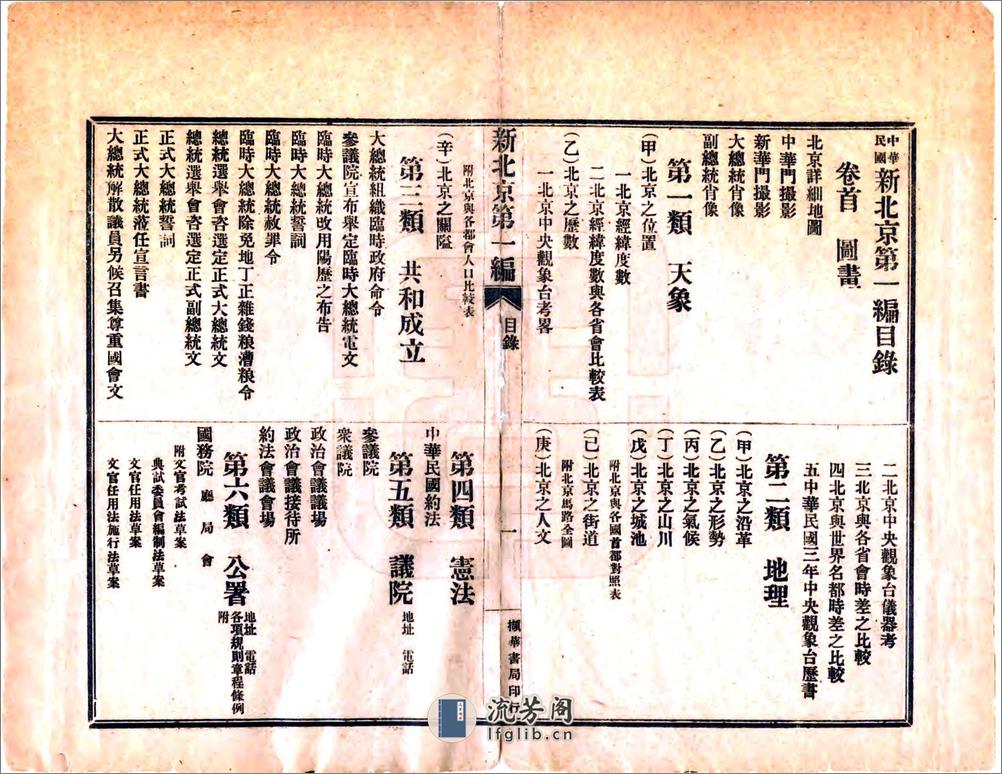 中華民國新北京第一編目錄
卷首　圖畫
北京詳細地圖
中華門撮影
新華門撮影
大總統肖像
副總統肖像
第一類　天象
（甲）北京之位置
一北京經緯度數
二北京經緯度數與各省會比較表
（乙）北京之歷數
一北京中央觀象台考畧
二北京中央觀象台儀器考
三北京與各省會時差之比較
四北京與世界名都時差之比較
五中華民國三年中央觀象台歷書
第二類　地理
（甲）北京之沿革
（乙）北京之形勢
（丙）北京之氣候
（丁）北京之山川
（戊）北京之城池
附北京與各國首都對照表
（己）北京之街道
附北京馬路全圖
（庚）北京之人文
新北京第一編
目錄
一
擷華書局印行
附北京與各都會人口比較表
（辛）北京之關隘
第三類　共和成立
大總統組織臨時政府命令
參議院宣布舉定臨時大總統電文
臨時大總統改用陽歷之布告
臨時大總統誓詞
臨時大總統赦罪令
臨時大總統除免地丁正雜錢粮漕粮令
總統選舉會咨選定正式大總統文
總統選舉會咨選定正式副總統文
正式大總統誓詞
正式大總統蒞任宣言書
大總統解散議員另候召集尊重國會文
第四類　憲法
中華民國約法
第五類　議院　地址　電話
參議院
衆議院
政治會議議場
政治會議接待所
約法會議會場
第六類　公署　地址　電話　附各項規則章程條例
國務院　廳　局　會
附文官考試法草案
典試委員會編制法草案
文官任用法草案
文官任用法施行法草案
流芳阁
lfglib.cn